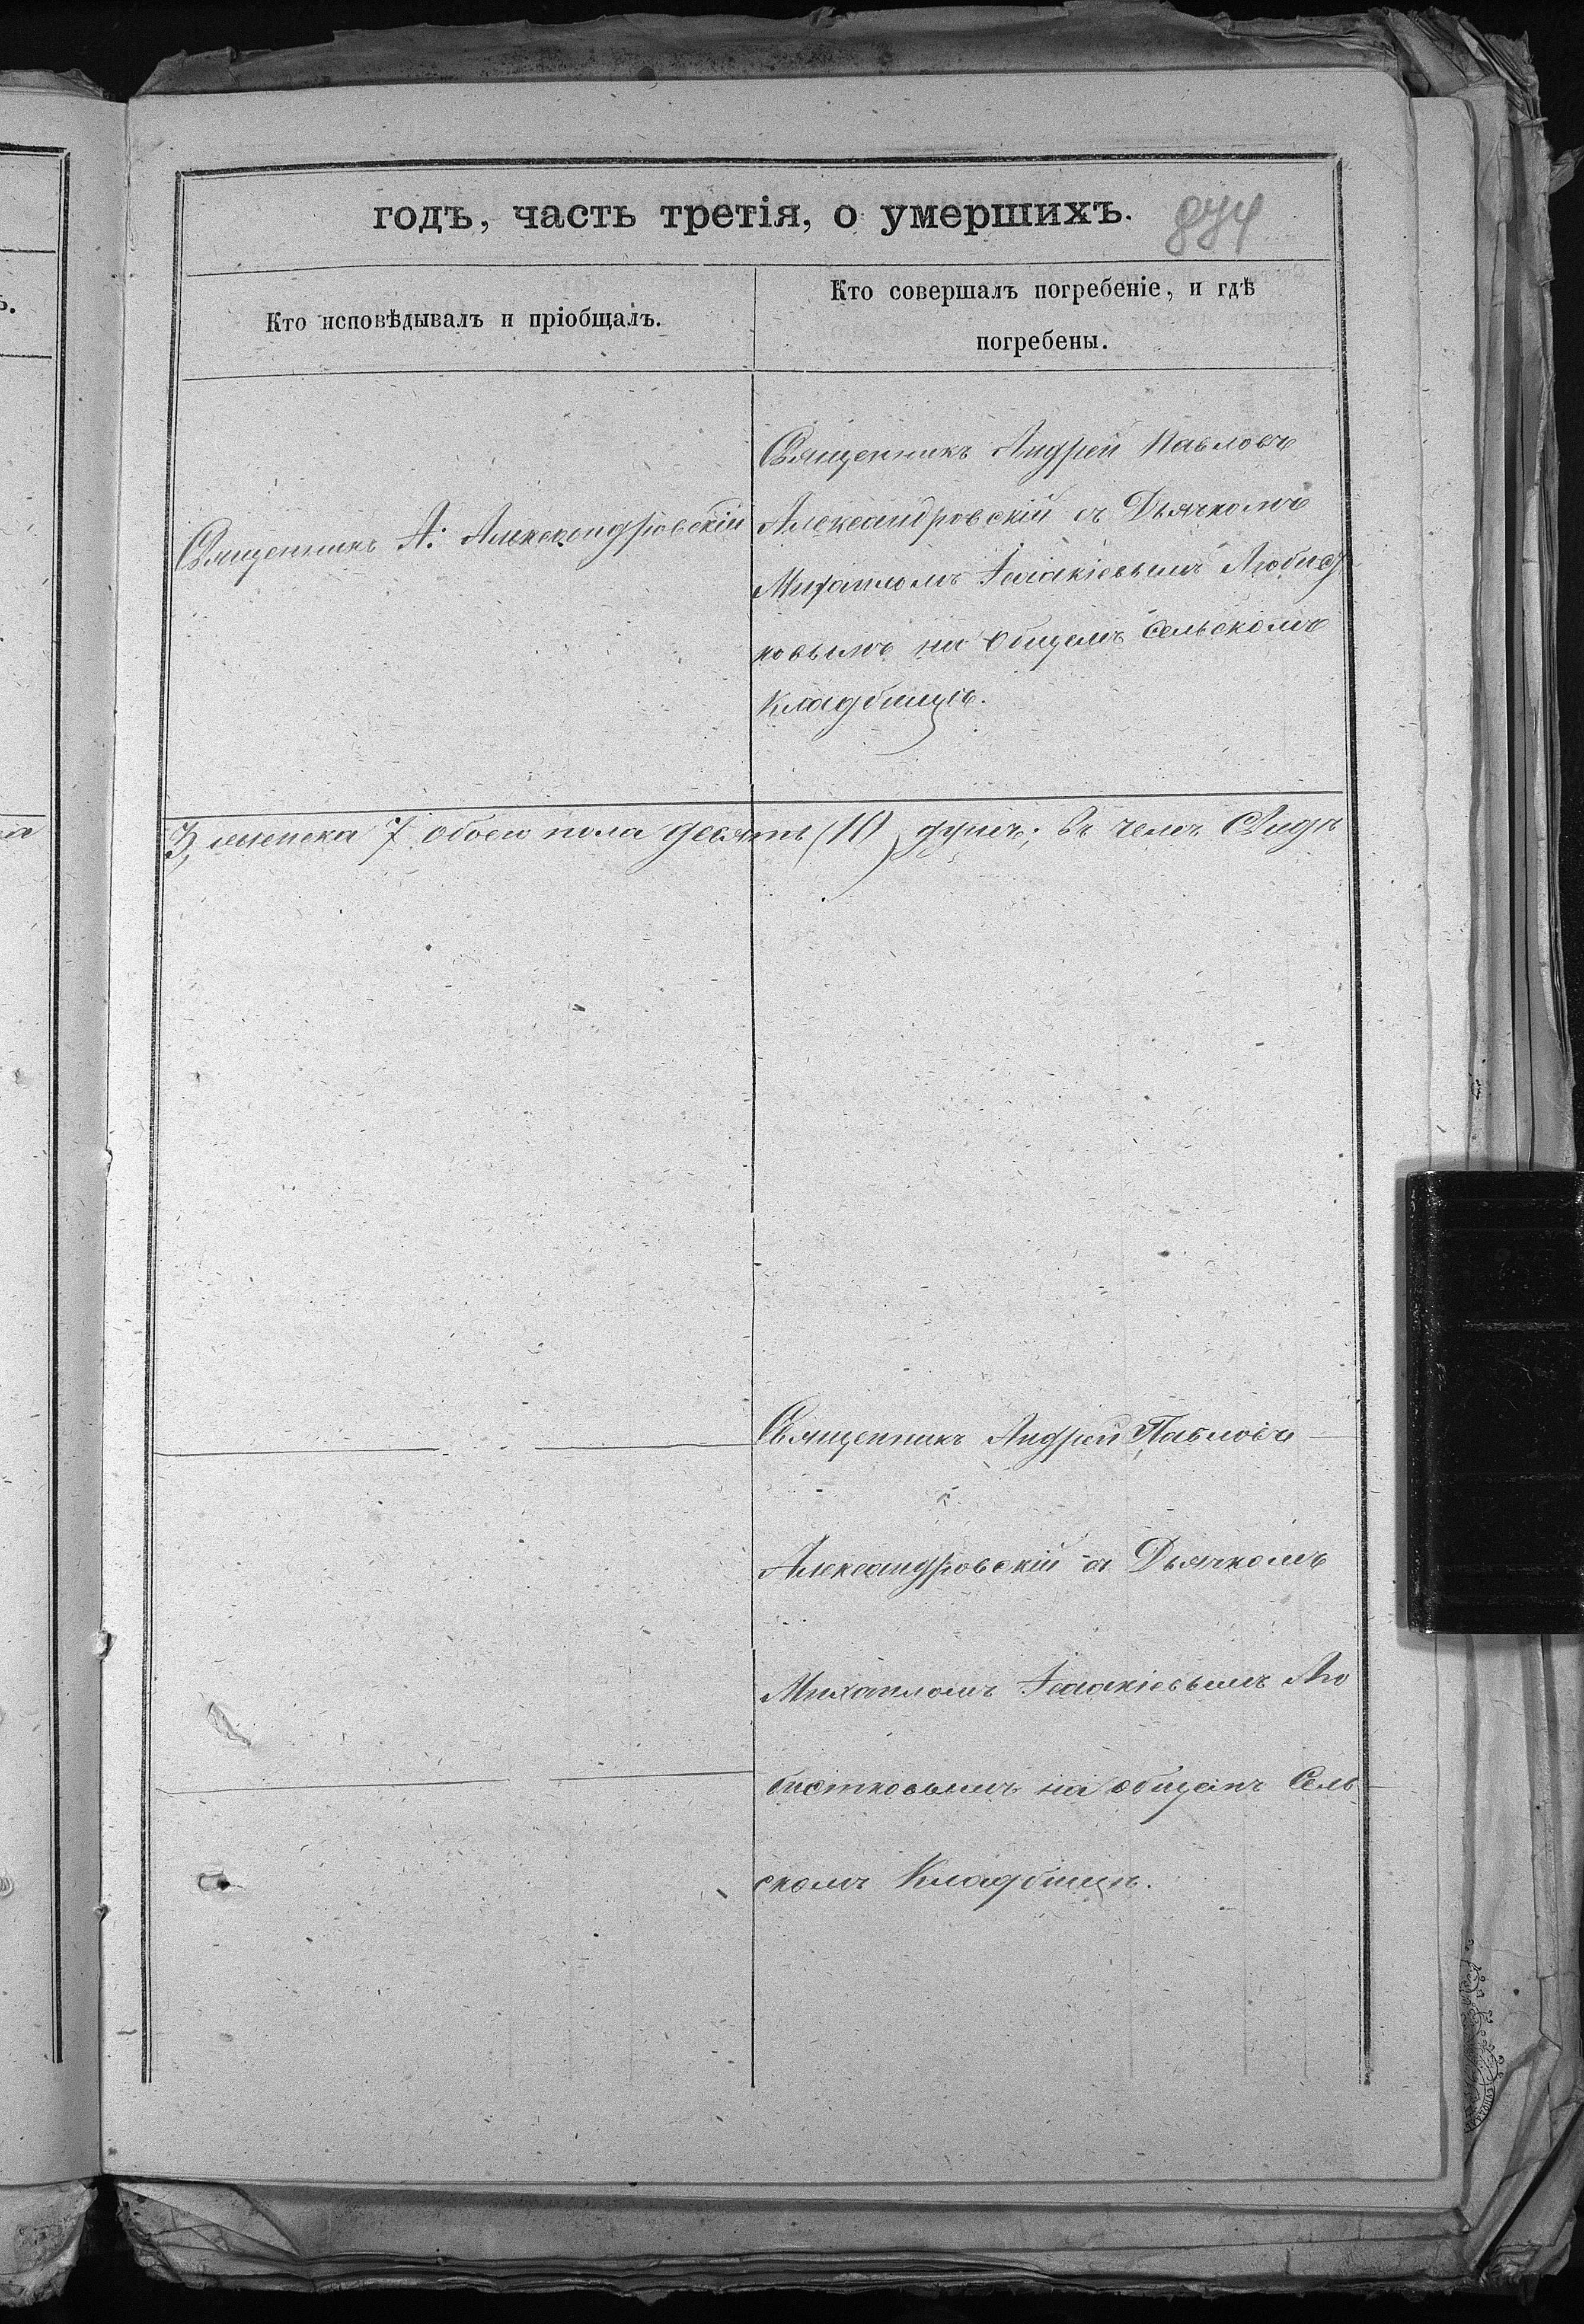 годъ, часть третія, о умершихъ. 874
Кто исповѣдывалъ и пріобщалъ.
Кто совершалъ погребеніе, и гдѣ
погребены.
Священникъ А: Александровскій
Священникъ Андрей Павловъ
Александровскій съ Дьячкомъ
Михаиломъ Ісаакіевымъ Любист
ковымъ на общемъ Сельскомъ
Кладбищѣ.
3, женска 7 обоего пола десять (10) душъ; въ чемъ Свидѣ
Священникъ Андрей Павловъ
Александровскій съ Дьячкомъ
Михаиломъ Ісаакіевымъ Лю
бистковымъ на общемъ Сель
скомъ Кладбищѣ.